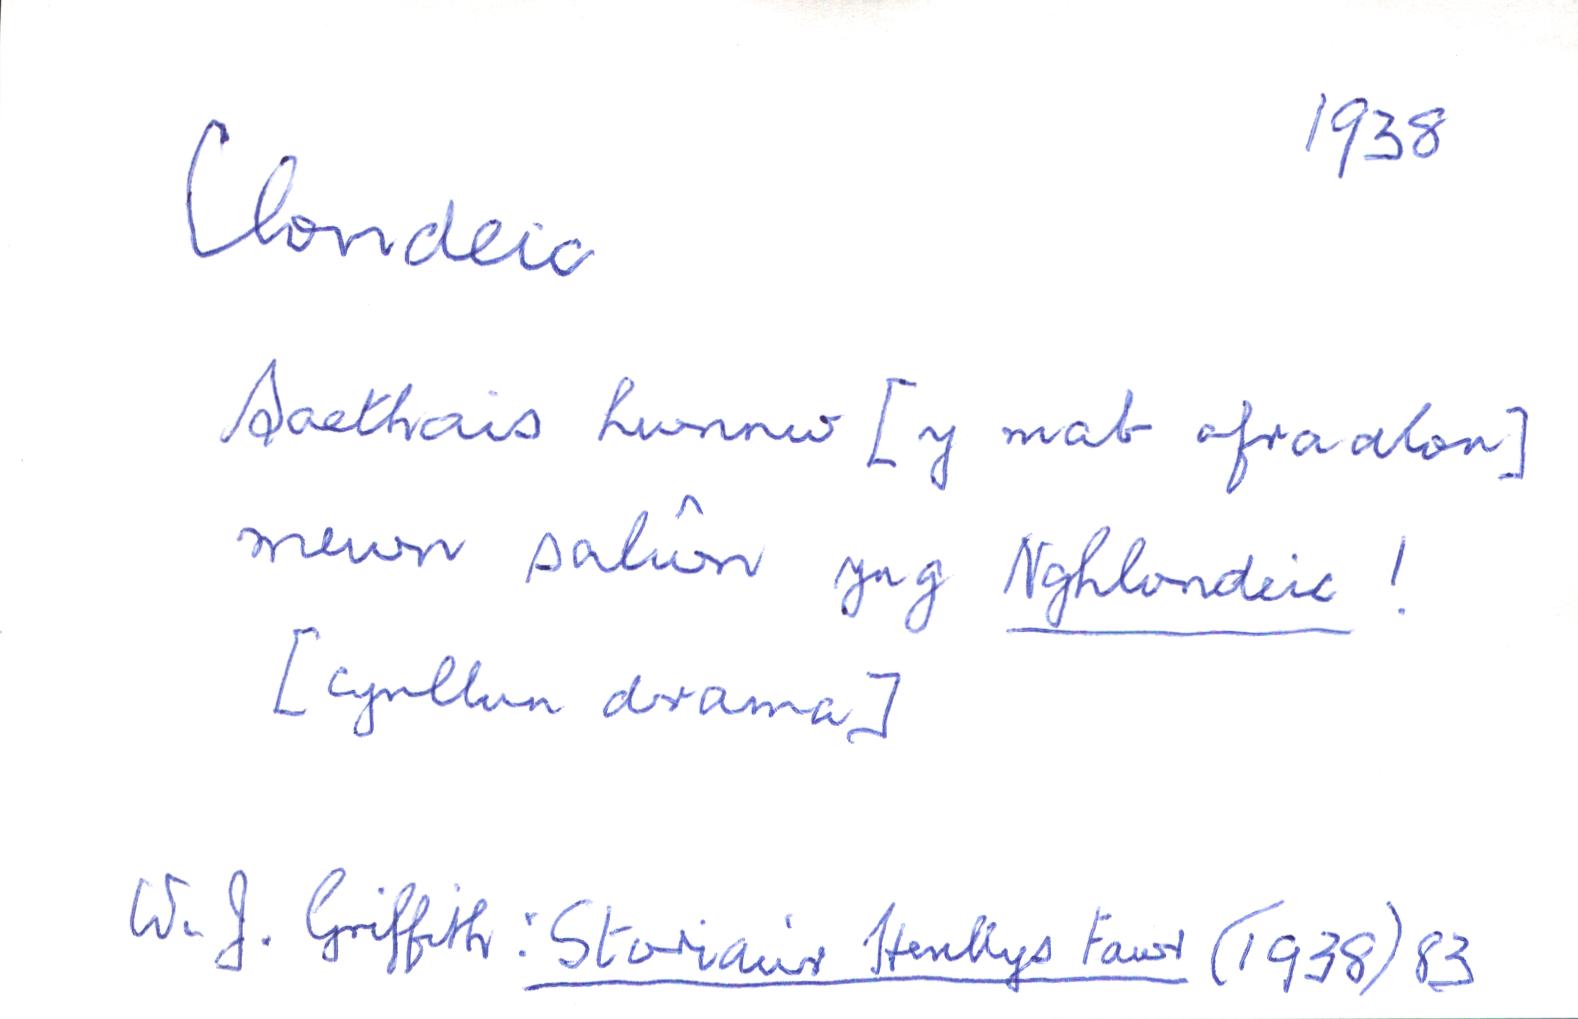 1938
Clondeic
Saethais hwnnw [y mab afradlon]
mewn salŵn yng Nghlondeic !
[cynllun drama]
W. J. Griffith: Storiau'r Henllys Fawr (1938) 83